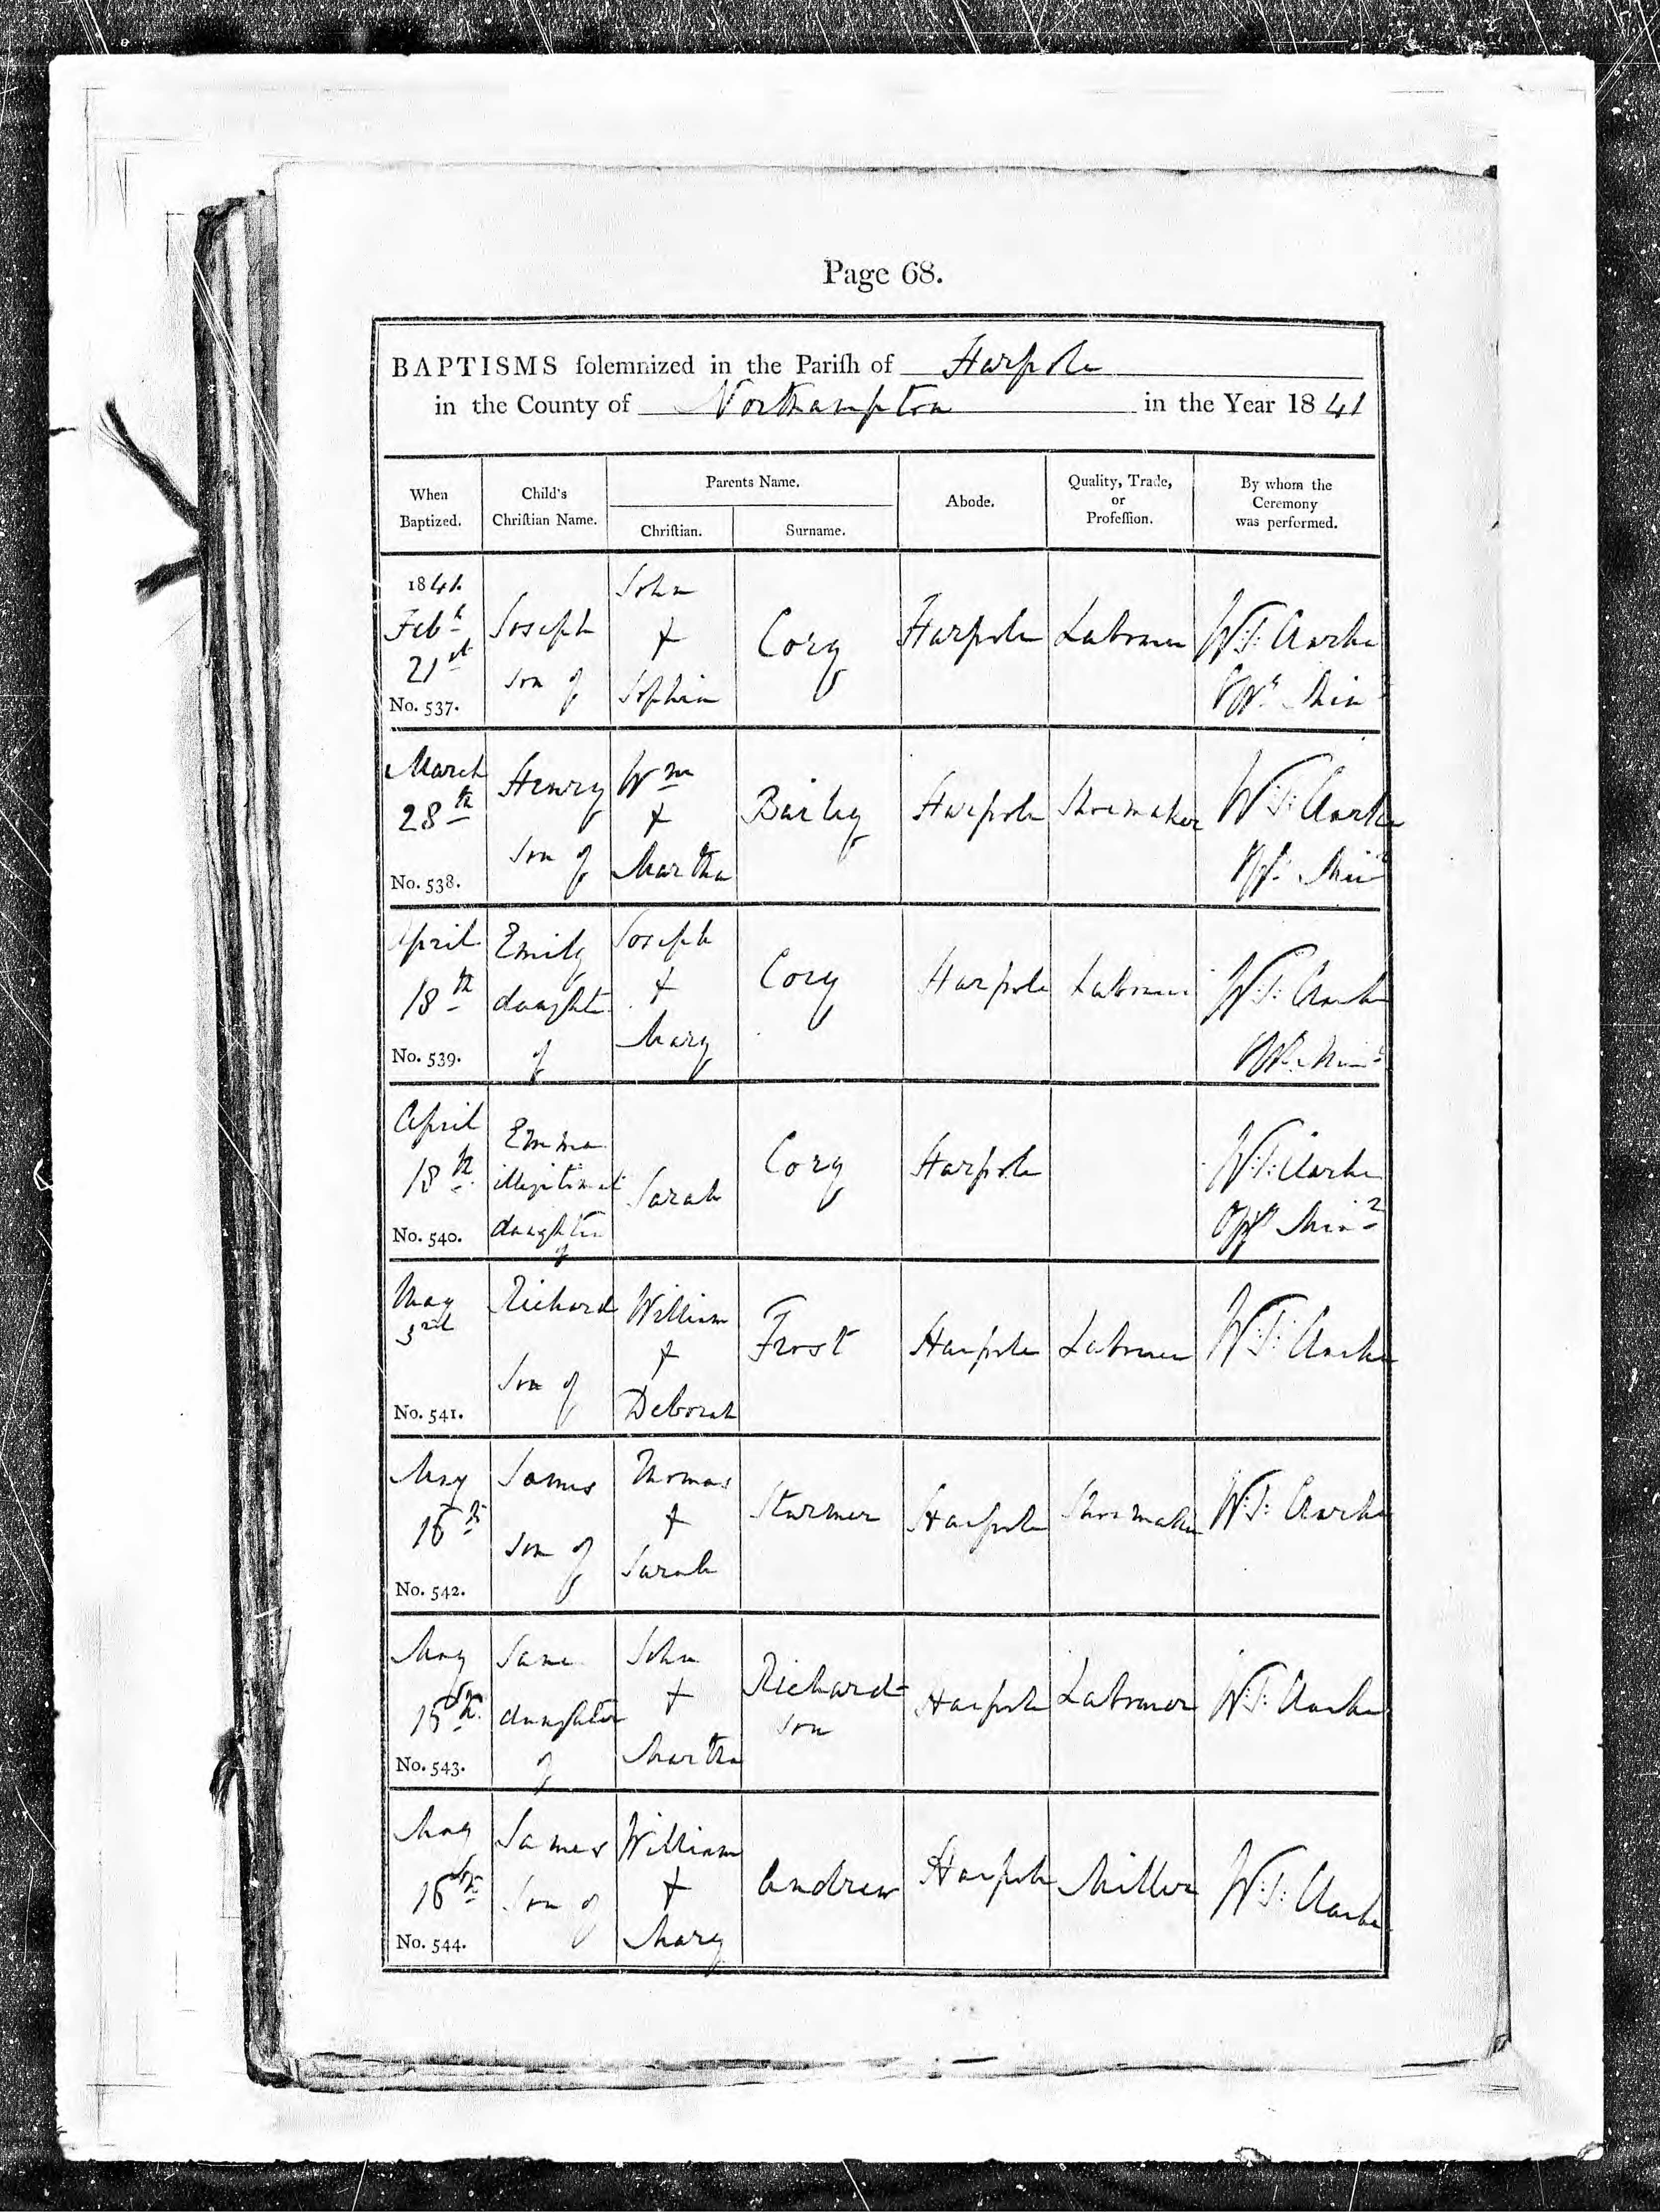 Page 68.
BAPTISMS ſolemnized in the Pariſh of Harpole
in the County of Northampton in the Year 1841
When Baptized.
Child's Chriſtian Name.
Parents Name.
Chriſtian.
Surname.
Abode.
Quality, Trade, or Profeſſion.
By whom the Ceremony was performed.
1841. Feby 21st No. 537.
Joseph son of
John + Sophia
Cory
Harpole
Labourer
W. T. Clarke Offg Minr
March 28th No. 538.
Henry Son of
Wm + Martha
Bailey
Harpole
Shoemaker
W. T. Clarke Offg Minr
April 18th No. 539.
Emily daughter of
Joseph + Mary
Cory
Harpole
Labourer
W. T. Clarke Offg Minr
April 18th No. 540.
Emma illegitimate daughter of
Sarah
Cory
Harpole
W. T. Clarke Offg Minr
May 3rd No. 541.
Richard Son of
William + Deborah
Frost
Harpole
Labourer
W. T. Clarke
May 16th No. 542.
James Son of
Thomas + Sarah
Sturmer
Harpole
Shoemaker
W. T. Clarke
May No. 543.
Jane daughter of
John + Martha
Richard-son
Harpole
Labourer
W. T. Clarke
May 16th No. 544.
James Son of
William + Mary
Andrew
Harpole
Miller
W. T. Clarke